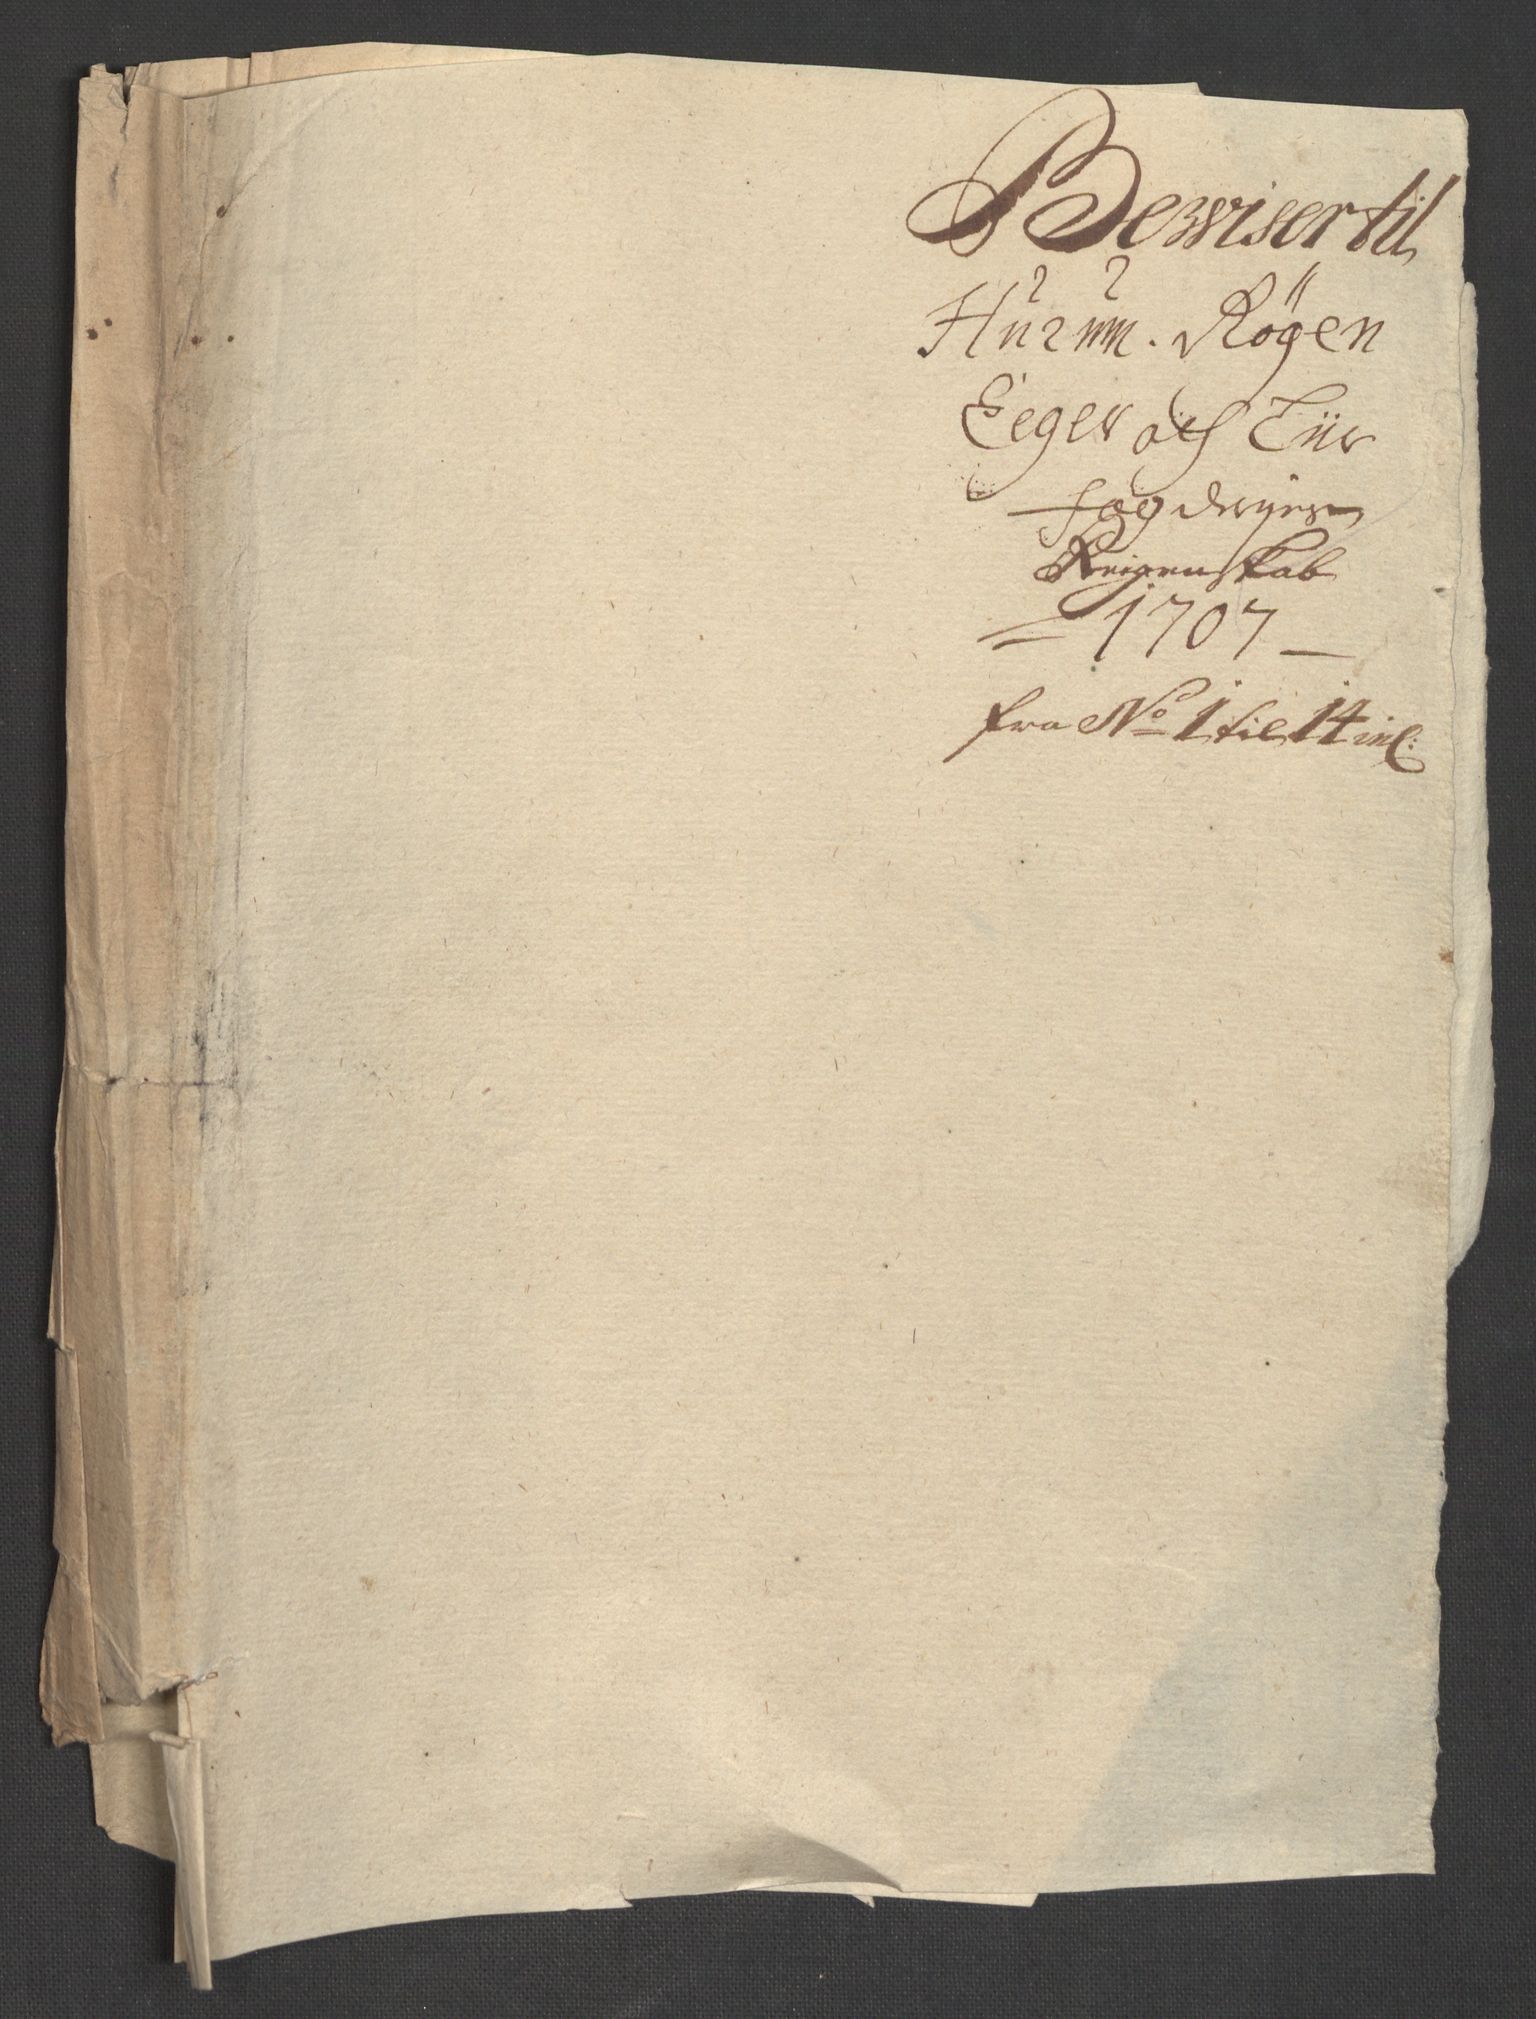 Bewiser til
Hurum. Rögen
Eeger och Liir
fogderyers
Reigenskab
1707
fra No 1 til 14 incl: